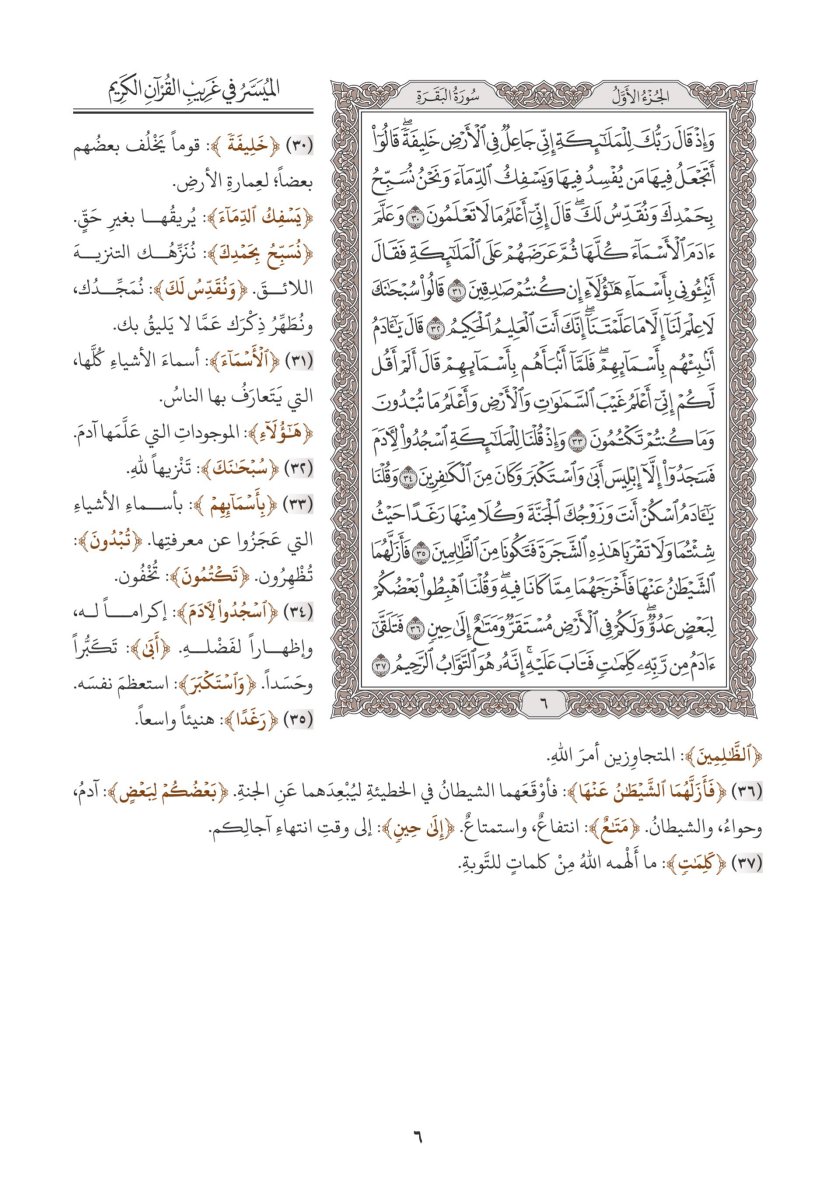 الجُزْءُ الأَوَّلُ
سُورَةُ البَقَرَةِ
وَإِذْ قَالَ رَبُّكَ لِلْمَلَٰٓئِكَةِ إِنِّي جَاعِلٌ فِي ٱلْأَرْضِ خَلِيفَةٗۖ قَالُوٓاْ
أَتَجْعَلُ فِيهَا مَن يُفْسِدُ فِيهَا وَيَسْفِكُ ٱلدِّمَآءَ وَنَحْنُ نُسَبِّحُ
بِحَمْدِكَ وَنُقَدِّسُ لَكَۖ قَالَ إِنِّيٓ أَعْلَمُ مَا لَا تَعْلَمُونَ ٣٠ وَعَلَّمَ
ءَادَمَ ٱلْأَسْمَآءَ كُلَّهَا ثُمَّ عَرَضَهُمْ عَلَى ٱلْمَلَٰٓئِكَةِ فَقَالَ
أَنۢبِـُٔونِي بِأَسْمَآءِ هَٰٓؤُلَآءِ إِن كُنتُمْ صَٰدِقِينَ ٣١ قَالُواْ سُبْحَٰنَكَ
لَا عِلْمَ لَنَآ إِلَّا مَا عَلَّمْتَنَآۖ إِنَّكَ أَنتَ ٱلْعَلِيمُ ٱلْحَكِيمُ ٣٢ قَالَ يَٰٓـَٔادَمُ
أَنۢبِئْهُم بِأَسْمَآئِهِمْۖ فَلَمَّآ أَنۢبَأَهُم بِأَسْمَآئِهِمْ قَالَ أَلَمْ أَقُل
لَّكُمْ إِنِّيٓ أَعْلَمُ غَيْبَ ٱلسَّمَٰوَٰتِ وَٱلْأَرْضِ وَأَعْلَمُ مَا تُبْدُونَ
وَمَا كُنتُمْ تَكْتُمُونَ ٣٣ وَإِذْ قُلْنَا لِلْمَلَٰٓئِكَةِ ٱسْجُدُواْ لِأٓدَمَ
فَسَجَدُوٓاْ إِلَّآ إِبْلِيسَ أَبَىٰ وَٱسْتَكْبَرَ وَكَانَ مِنَ ٱلْكَٰفِرِينَ ٣٤ وَقُلْنَا
يَٰٓـَٔادَمُ ٱسْكُنْ أَنتَ وَزَوْجُكَ ٱلْجَنَّةَ وَكُلَا مِنْهَا رَغَدًا حَيْثُ
شِئْتُمَا وَلَا تَقْرَبَا هَٰذِهِ ٱلشَّجَرَةَ فَتَكُونَا مِنَ ٱلظَّٰلِمِينَ ٣٥ فَأَزَلَّهُمَا
ٱلشَّيْطَٰنُ عَنْهَا فَأَخْرَجَهُمَا مِمَّا كَانَا فِيهِۖ وَقُلْنَا ٱهْبِطُواْ بَعْضُكُمْ
لِبَعْضٍ عَدُوّٞۖ وَلَكُمْ فِي ٱلْأَرْضِ مُسْتَقَرّٞ وَمَتَٰعٌ إِلَىٰ حِينٖ ٣٦ فَتَلَقَّىٰٓ
ءَادَمُ مِن رَّبِّهِۦ كَلِمَٰتٖ فَتَابَ عَلَيْهِۚ إِنَّهُۥ هُوَ ٱلتَّوَّابُ ٱلرَّحِيمُ ٣٧
٦
الميُسَّرُ في غَرِيبِ القُرْآنِ الكَرِيمِ
(٣٠) ﴿خَلِيفَةٗ﴾: قوماً يَخْلُف بعضُهم
بعضاً؛ لعِمارةِ الأرضِ.
﴿يَسْفِكُ ٱلدِّمَآءَ﴾: يُريقُهـا بغيرِ حَقٍّ.
﴿نُسَبِّحُ بِحَمْدِكَ﴾: نُنَزِّهُـك التنزيـهَ
اللائـقَ. ﴿وَنُقَدِّسُ لَكَ﴾: نُمَجِّـدُك،
ونُطَهِّرُ ذِكْرَك عَمَّا لا يَليقُ بك.
(٣١) ﴿ٱلْأَسْمَآءَ﴾: أسماءَ الأشياءِ كُلَّها،
التي يَتَعارَفُ بها الناسُ.
﴿هَٰٓؤُلَآءِ﴾: الموجوداتِ التي عَلَّمَها آدمَ.
(٣٢) ﴿سُبْحَٰنَكَ﴾: تَنْزيهاً للهِ.
(٣٣) ﴿بِأَسْمَآئِهِمْ﴾: بأسـماءِ الأشياءِ
التي عَجَزُوا عن معرفتِها. ﴿تُبْدُونَ﴾:
تُظْهِرُون. ﴿تَكْتُمُونَ﴾: تُخْفُون.
(٣٤) ﴿ٱسْجُدُواْ لِأٓدَمَ﴾: إكرامـاً لـه،
وإظهـاراً لفَضْلـهِ. ﴿أَبَىٰ﴾: تَكَبُّراً
وحَسَداً. ﴿وَٱسْتَكْبَرَ﴾: استعظمَ نفسَه.
(٣٥) ﴿رَغَدًا﴾: هنيئاً واسعاً.
﴿ٱلظَّٰلِمِينَ﴾: المتجاوِزين أمرَ اللهِ.
(٣٦) ﴿فَأَزَلَّهُمَا ٱلشَّيْطَٰنُ عَنْهَا﴾: فأوْقَعَهما الشيطانُ في الخطيئةِ ليُبْعِدَهما عَنِ الجنةِ. ﴿بَعْضُكُمْ لِبَعْضٍ﴾: آدمُ،
وحواءُ، والشيطانُ. ﴿مَتَٰعٌ﴾: انتفاعٌ، واستمتاعٌ. ﴿إِلَىٰ حِينٖ﴾: إلى وقتِ انتهاءِ آجالِكم.
(٣٧) ﴿كَلِمَٰتٖ﴾: ما أَلْهمه اللهُ مِنْ كلماتٍ للتَّوبةِ.
٦